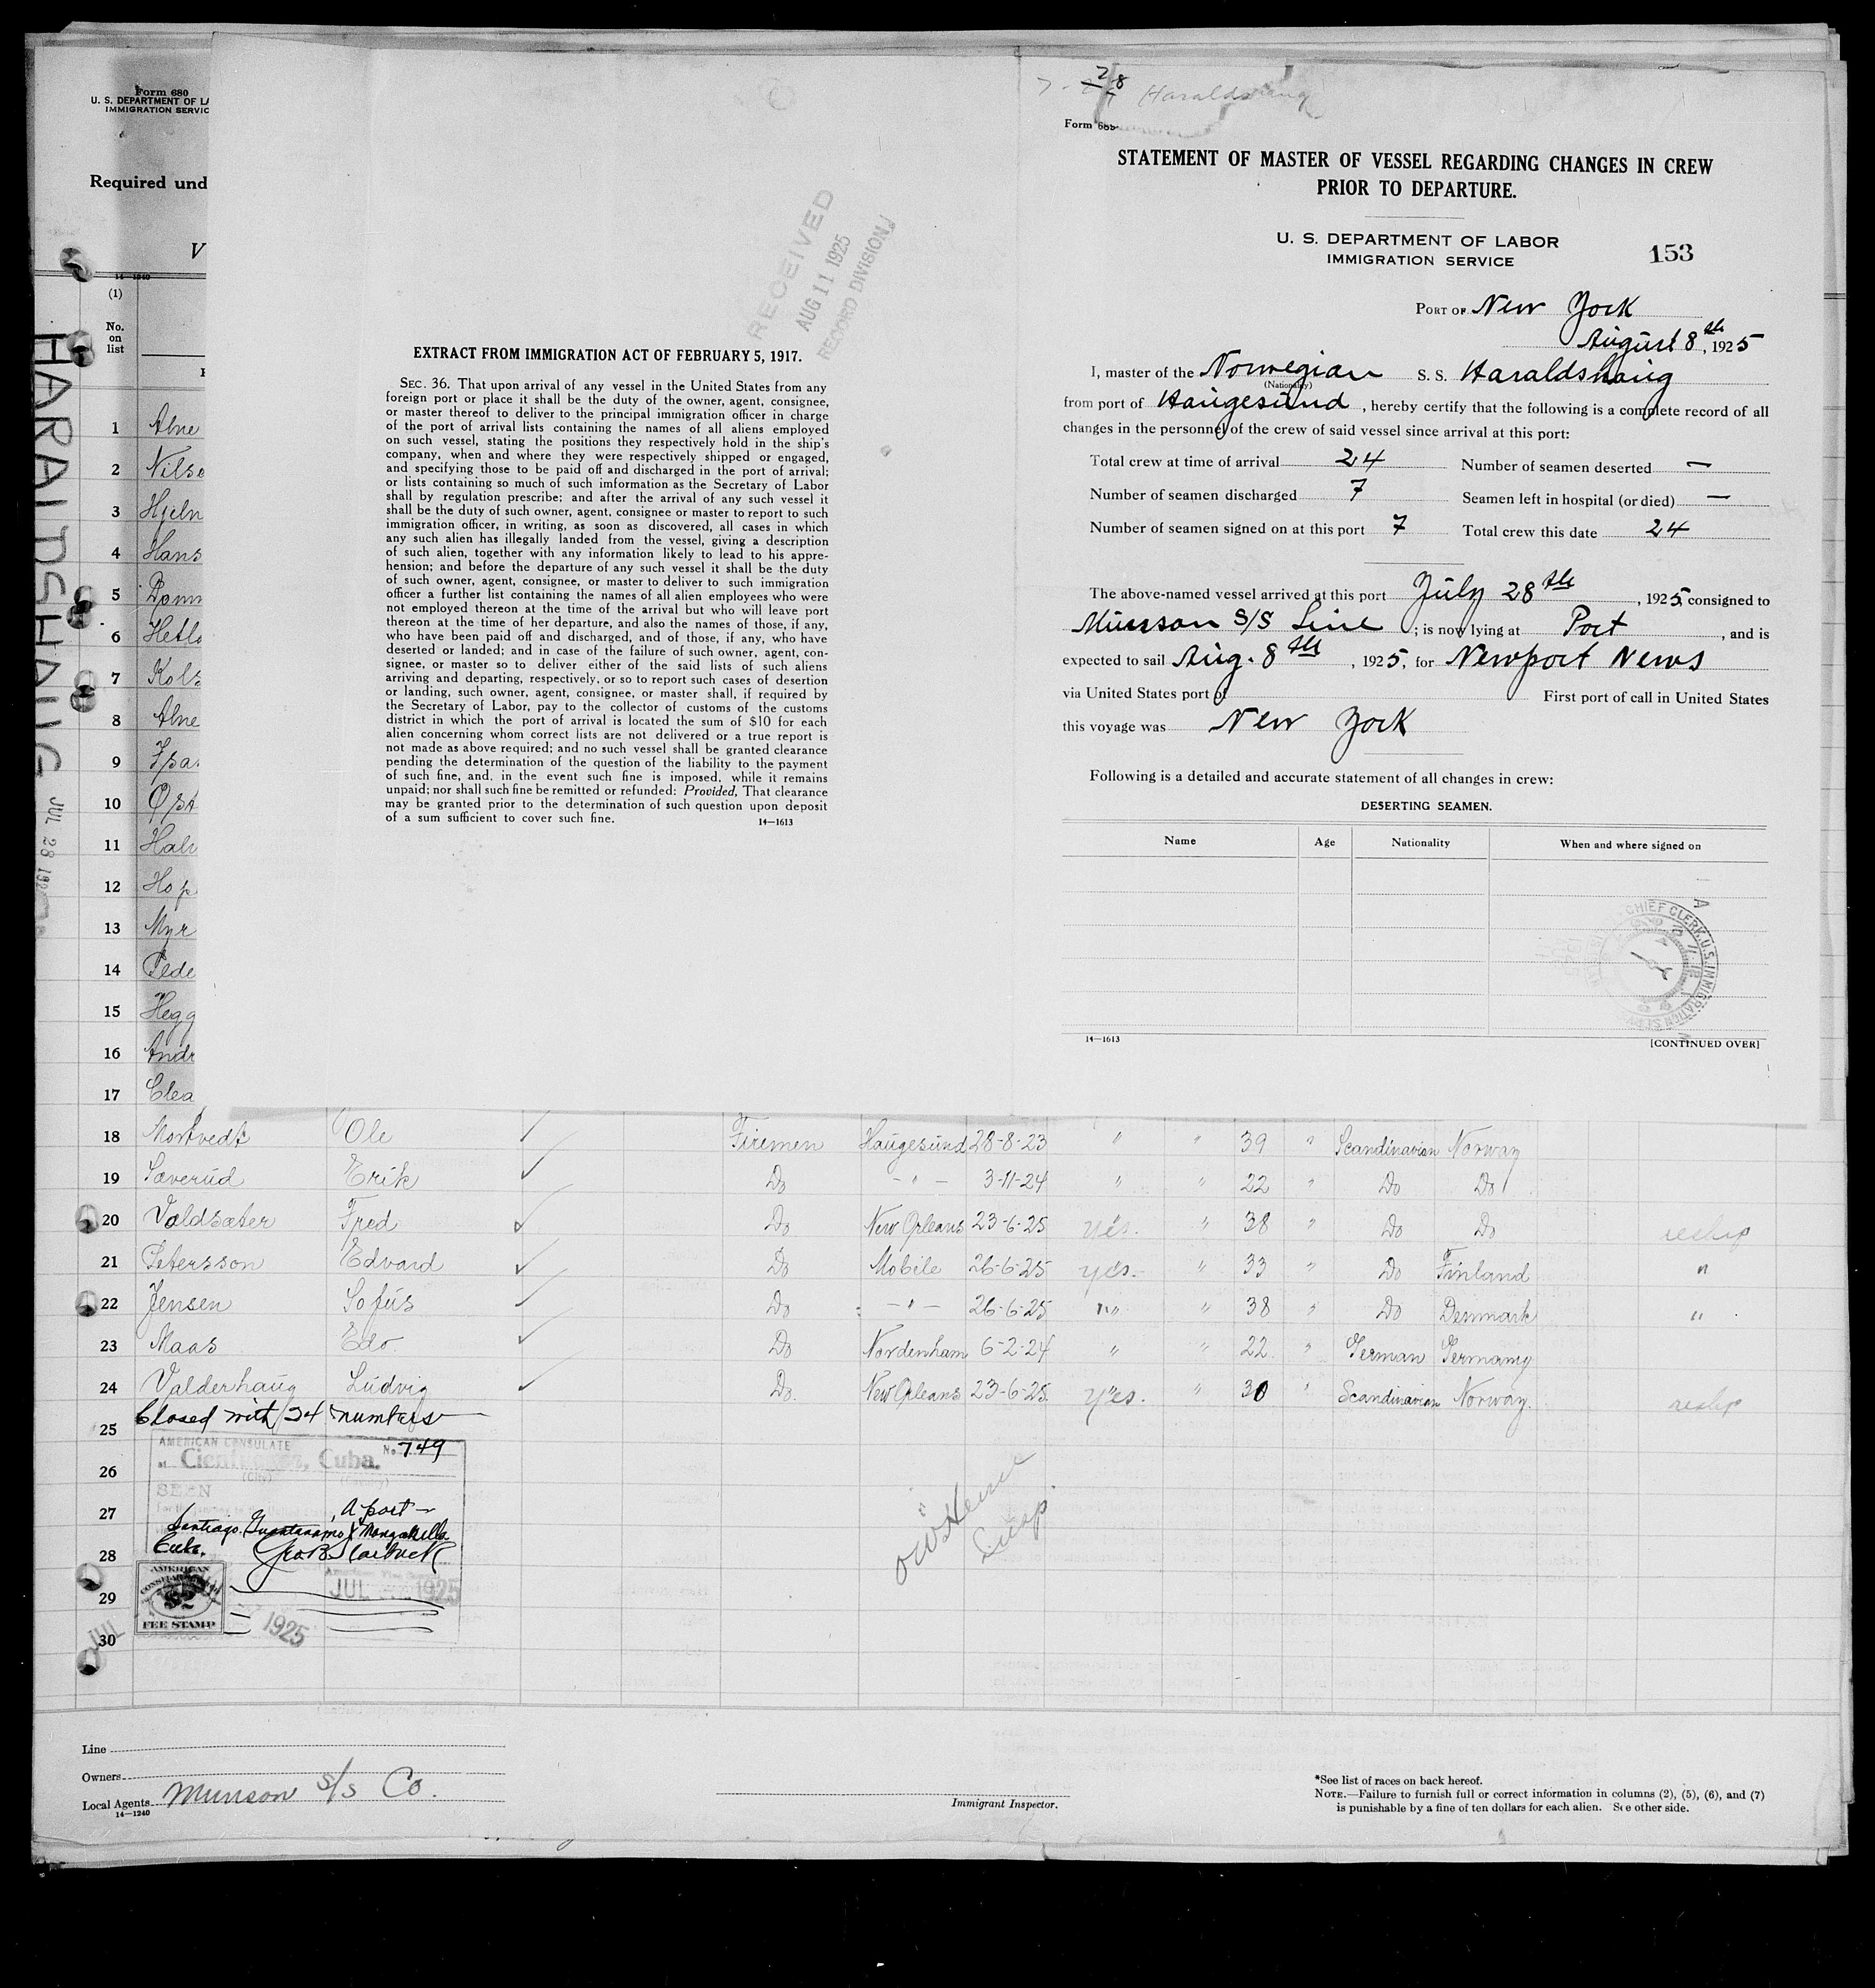 Form 680
U. S. DEPARTMENT OF LA
IMMIGRATION SERVIC
Required und
V
14—1240
(1)
No.
on
list
HARALDSHAUG
JUL 28 192
1 Abne
2 Nilse
3 Hjeln
4 Hans
5
6 Hetlo
7 Kols
8 Abne
9
10 Øst
11 Halv
12 Hop
13 Myr
14 Pede
15 Hegg
16 Andr
17 Clea
RECEIVED
AUG 11 1925
RECORD DIVISION
EXTRACT FROM IMMIGRATION ACT OF FEBRUARY 5, 1917.
SEC. 36. That upon arrival of any vessel in the United States from any
foreign port or place it shall be the duty of the owner, agent, consignee,
or master thereof to deliver to the principal immigration officer in charge
of the port of arrival lists containing the names of all aliens employed
on such vessel, stating the positions they respectively hold in the ship's
company, when and where they were respectively shipped or engaged,
and specifying those to be paid off and discharged in the port of arrival;
or lists containing so much of such imformation as the Secretary of Labor
shall by regulation prescribe; and after the arrival of any such vessel it
shall be the duty of such owner, agent, consignee or master to report to such
immigration officer, in writing, as soon as discovered, all cases in which
any such alien has illegally landed from the vessel, giving a description
of such alien, together with any information likely to lead to his appre-
hension; and before the departure of any such vessel it shall be the duty
of such owner, agent, consignee, or master to deliver to such immigration
officer a further list containing the names of all alien employees who were
not employed thereon at the time of the arrival but who will leave port
thereon at the time of her departure, and also the names of those, if any,
who have been paid off and discharged, and of those, if any, who have
deserted or landed; and in case of the failure of such owner, agent, con-
signee, or master so to deliver either of the said lists of such aliens
arriving and departing, respectively, or so to report such cases of desertion
or landing, such owner, agent, consignee, or master shall, if required by
the Secretary of Labor, pay to the collector of customs of the customs
district in which the port of arrival is located the sum of $10 for each
alien concerning whom correct lists are not delivered or a true report is
not made as above required; and no such vessel shall be granted clearance
pending the determination of the question of the liability to the payment
of such fine, and, in the event such fine is imposed, while it remains
unpaid; nor shall such fine be remitted or refunded: Provided, That clearance
may be granted prior to the determination of such question upon deposit
of a sum sufficient to cover such fine.
14—1613
28 Haraldshaug
Form 689
STATEMENT OF MASTER OF VESSEL REGARDING CHANGES IN CREW
PRIOR TO DEPARTURE.
U. S. DEPARTMENT OF LABOR
IMMIGRATION SERVICE
153
PORT OF New York
August 8th, 1925
I, master of the Norwegian S. S. Haraldshaug
(Nationality)
from port of Haugesund, hereby certify that the following is a complete record of all
changes in the personnel of the crew of said vessel since arrival at this port:
Total crew at time of arrival 24 Number of seamen deserted —
Number of seamen discharged 7 Seamen left in hospital (or died) —
Number of seamen signed on at this port 7 Total crew this date 24
The above-named vessel arrived at this port July 28th, 1925, consigned to
Munson S/S Line; is now lying at Port, and is
expected to sail Aug. 8th, 1925, for Newport News
via United States port of First port of call in United States
this voyage was New York
Following is a detailed and accurate statement of all changes in crew:
DESERTING SEAMEN.
Name Age Nationality When and where signed on
CHIEF CLERK, U. S. IMMIGRATION SERV
14—1613
[CONTINUED OVER]
18 Mortvedt Ole Firemen Haugesund 28-8-23 " " 39 " Scandinavian Norway
19 Sæverud Erik Do -"- 3-11-24 " " 22 " Do Do
20 Valdsæter Fred Do New Orleans 23-6-25 yes. " 38 " Do Do reship
21 Petersson Edvard Do Mobile 26-6-25 yes. " 33 " Do Finland "
22 Jensen Sofus Do -"- 26-6-25 " " 38 " Do Denmark "
23 Maas Edo. Do Nordenham 6-2-24 " " 22 " German Germany
24 Valderhaug Ludvig Do. New Orleans 23-6-25 yes. " 30 " Scandinavian Norway. reship
Closed with 24 numbers
25
26
27
28
29
30
AMERICAN CONSULATE
No. 749
at Cienfuegos, Cuba.
(City) (Country)
SEEN
, a port
Santiago, Guantanamo &
Cuba.
JUL 1925
AMERICAN
CONSULAR
FEE STAMP
JUL 1925
Insp.
Line
Owners
Local Agents Munson S/S Co.
14—1240
Immigrant Inspector.
*See list of races on back hereof.
NOTE.—Failure to furnish full or correct information in columns (2), (5), (6), and (7)
is punishable by a fine of ten dollars for each alien. See other side.